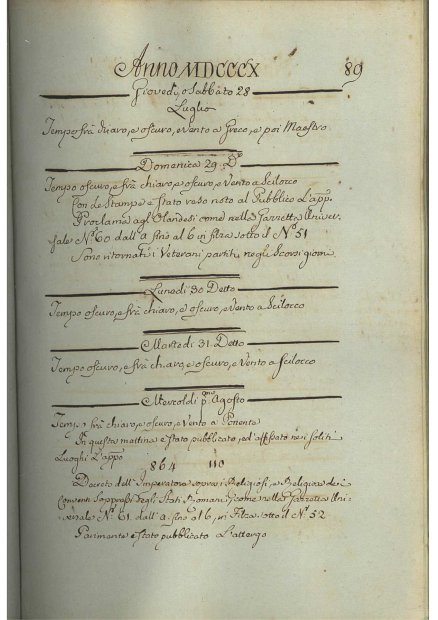 Anno MDCCCX 89
Giovedì, o Sabbato 28
Luglio
Tempo frà chiaro, e oscuro, e Vento a Greco, e poi Maestro
Domenica 29 Do
Tempo oscuro, e frà chiaro, e oscuro, e Vento a Scilocco
Con le Stampe è stato reso noto al Pubblico L'app.
Proclama agl'Olandesi come nella Gazzetta Univer-
sale No. 60 dall' a fino al 6 in filza sotto il No. 51
Sono ritornati i Veterani partiti negli Scorsi giorni
Lunedì 30 Detto
Tempo oscuro, e frà chiaro, e oscuro, e Vento a Scilocco
Martedì 31 Detto
Tempo oscuro, e frà chiaro, e oscuro, e Vento a Scilocco
Mercoldì pmo. Agosto
Tempo frà chiaro, e oscuro, e Vento a Ponente
In questa mattina è stato pubblicato, ed affissato nei soliti
Luoghi L'appo
864 110
Decreto dell'Imperatore sopra i Religiosi, e Religiose de
Conventi Soppressi degli Stati Romani come nella Gazzetta Uni-
versale No. 61 dall' a fino al 6, in Filza sotto il No. 52
Parimante è stato pubblicato L'attergo